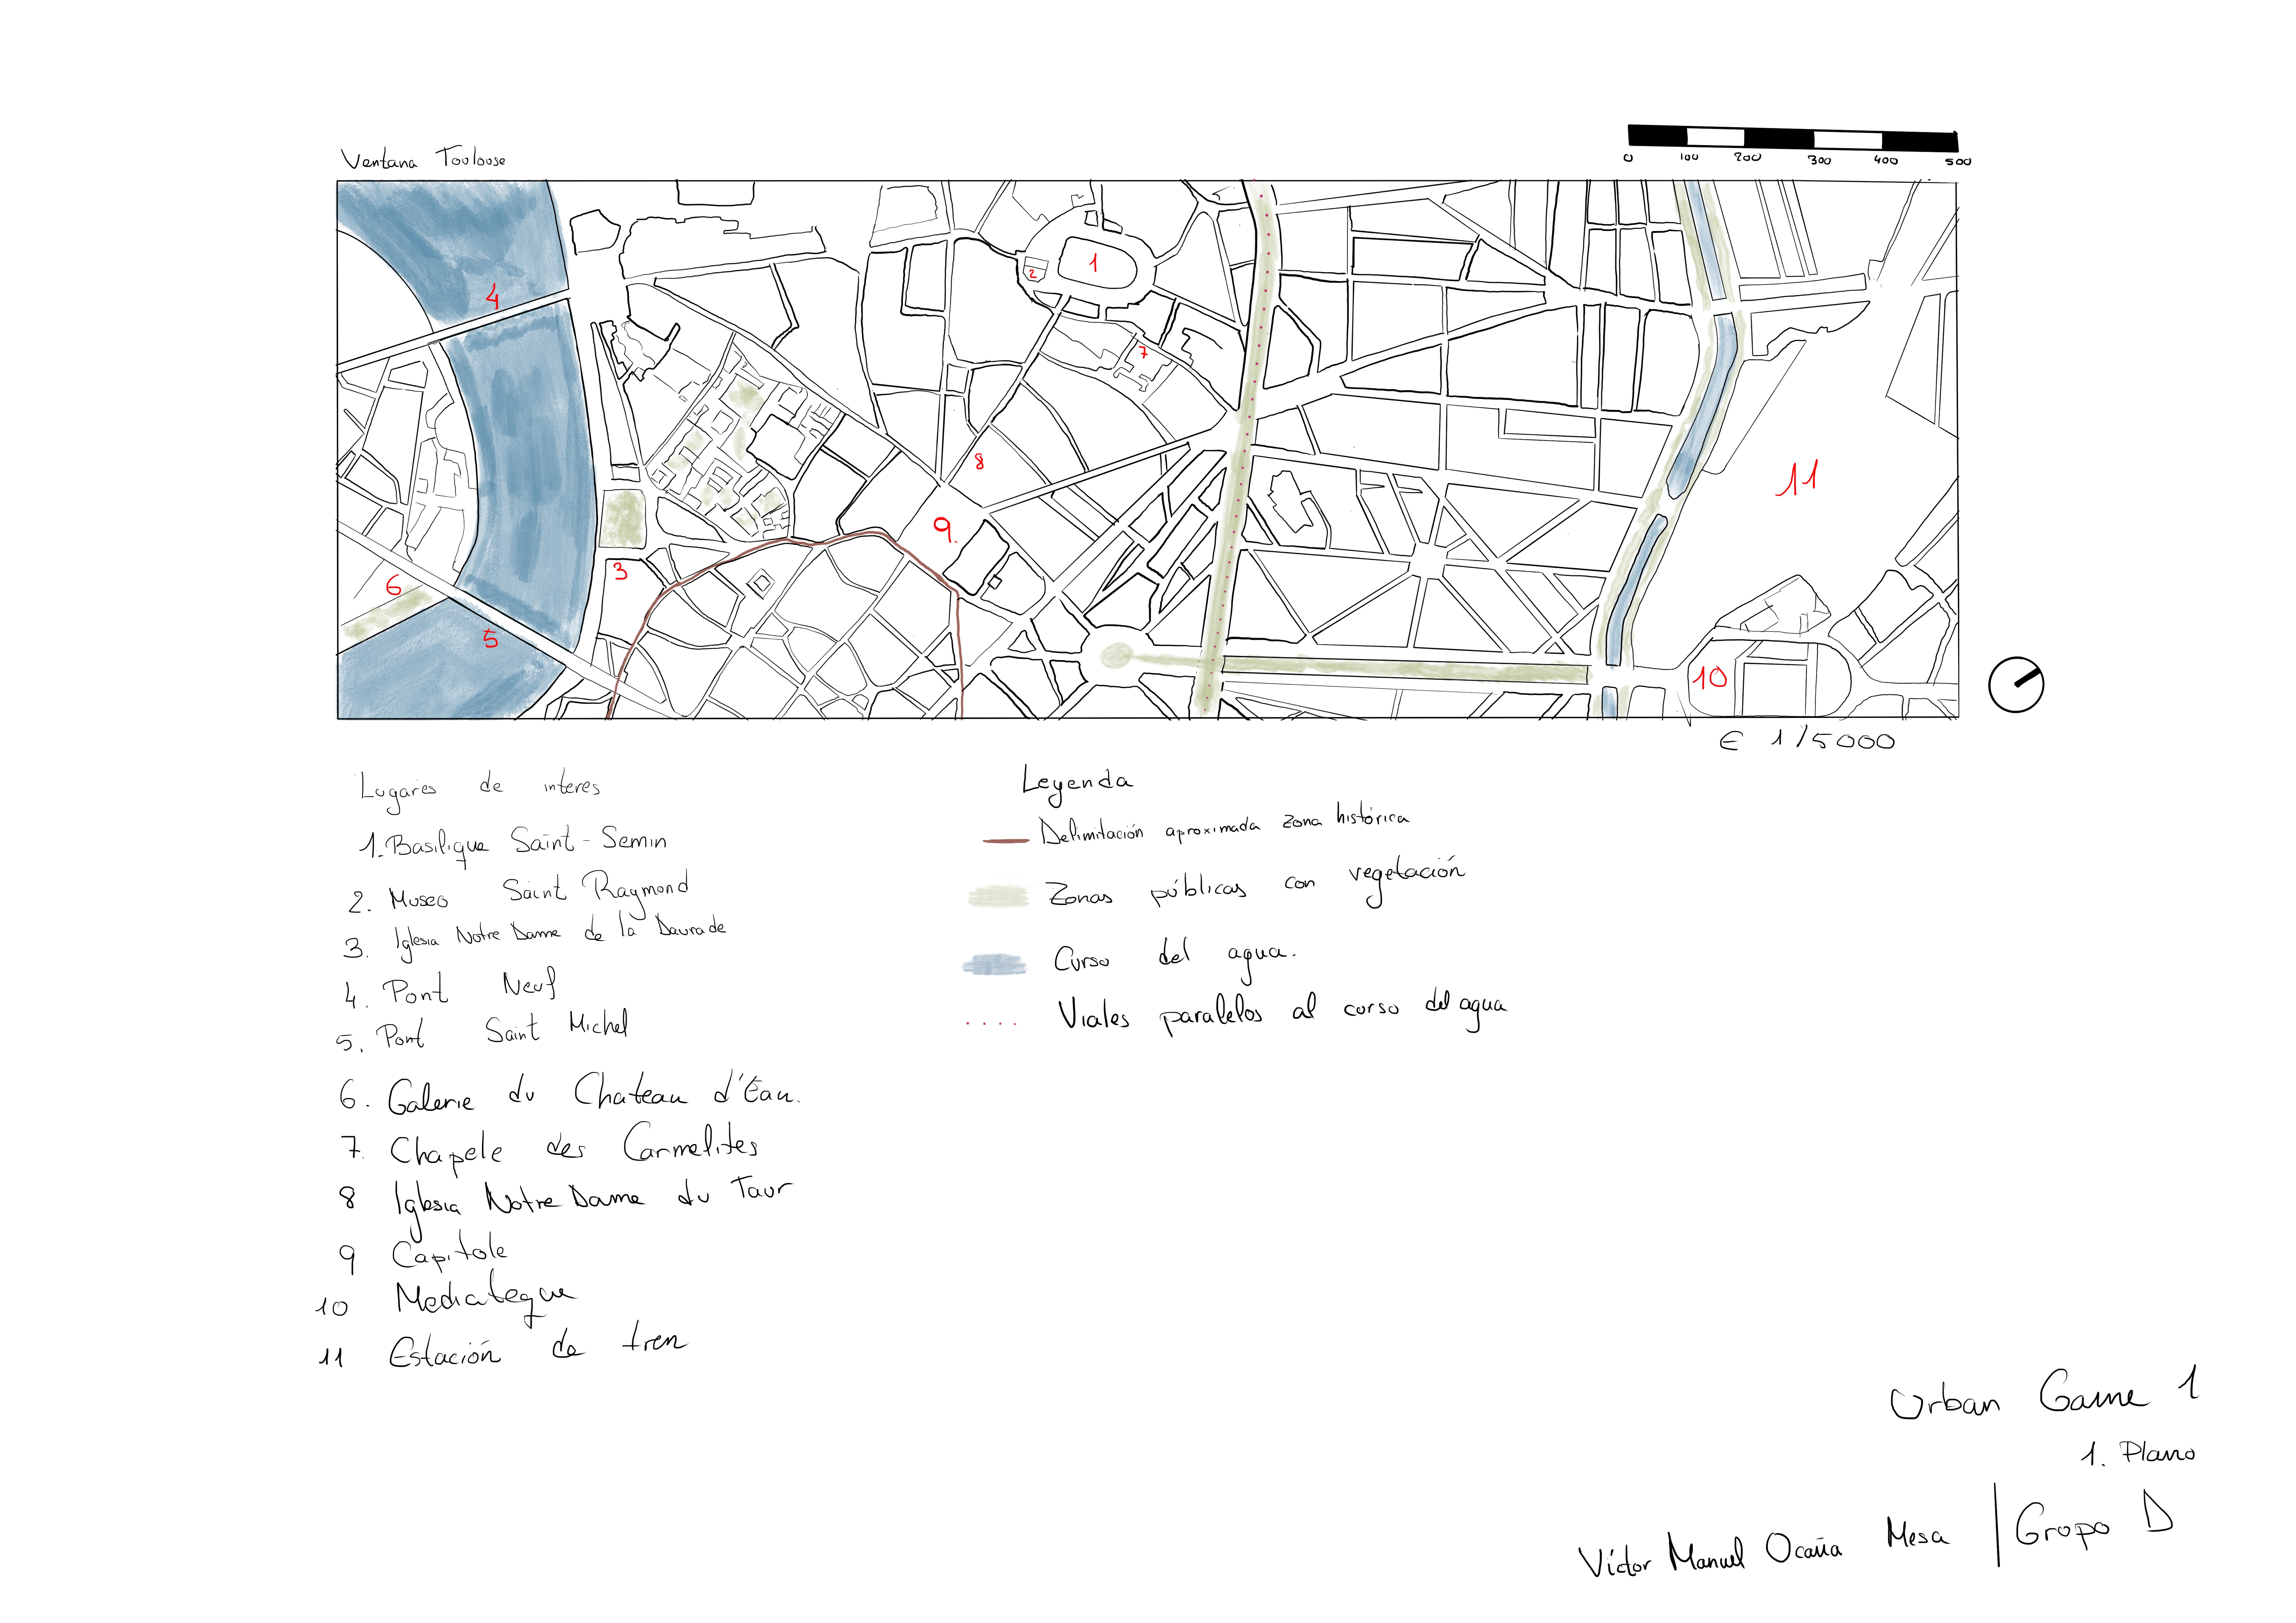 Ventana Toulouse
0 100 200 300 400 500
1
2
4
7
8
11
9.
3
6
5
10
E 1/5000
Lugares de interes
1. Basilique Saint-Sernin
2. Museo Saint Raymond
3. Iglesia Notre Dame de la Daurade
4. Pont Neuf
5. Pont Saint Michel
6. Galerie du Chateau d'Eau.
7. Chapele des Carmelites
8 Iglesia Notre Dame du Taur
9 Capitole
10 Mediateque
11 Estación de tren
Leyenda
Delimitación aproximada zona histórica
Zonas públicas con vegetación
Curso del agua.
Viales paralelos al curso del agua
Urban Game 1
1. Plano
Víctor Manuel Ocaña Mesa | Grupo D